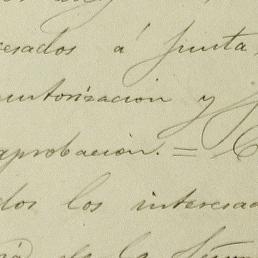 esados á Junta,
autorizacion y
aprobacion. =
dos los interesad
de la